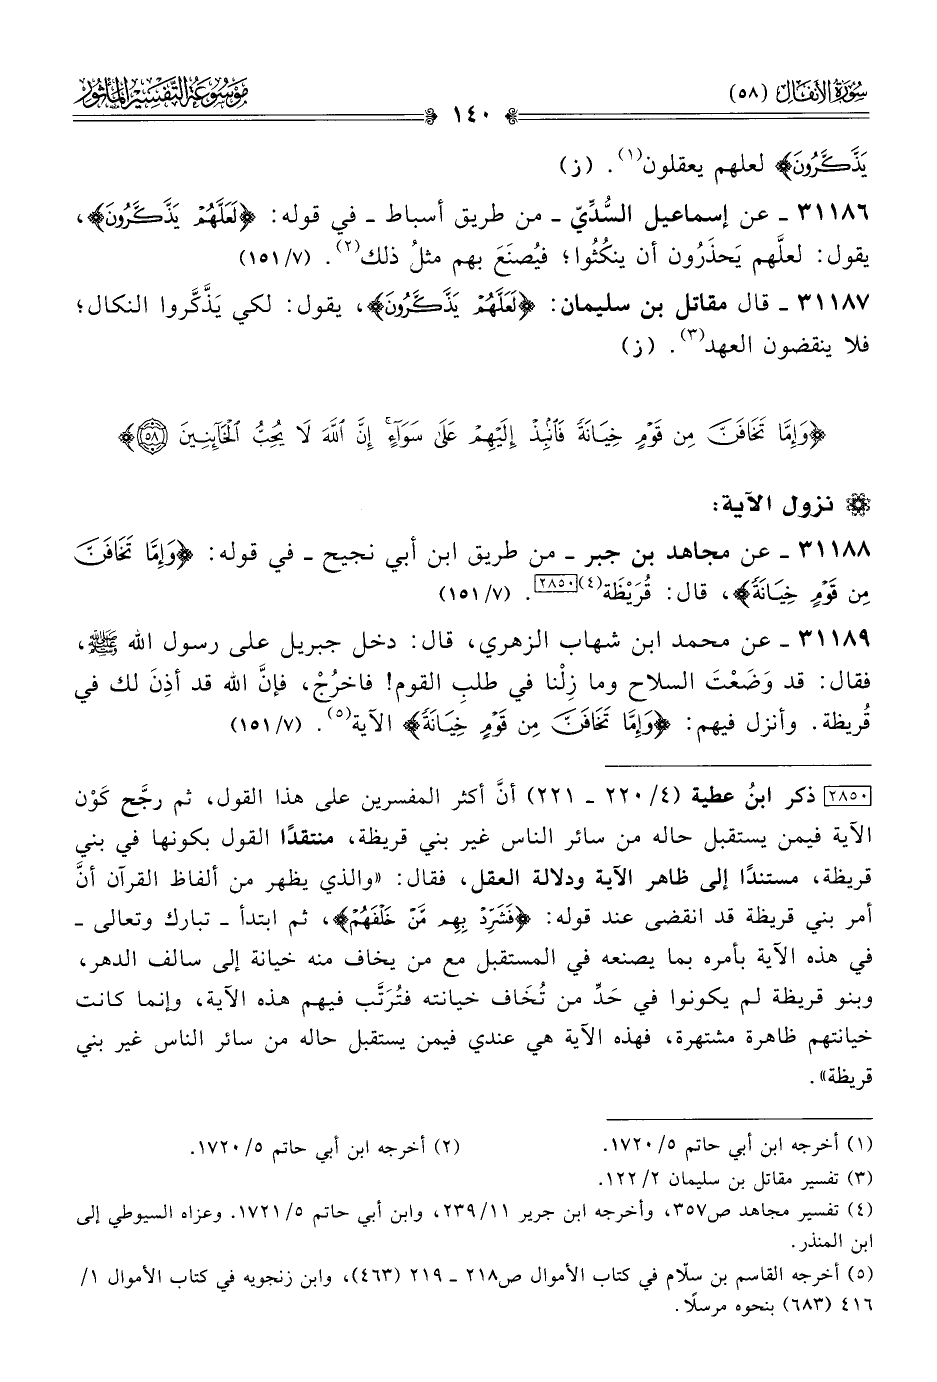 سُورَةُ الأَنفَالِ (٥٨)
مَوْسُوعَةُ التَّفْسِيرِ المَأْثُور
١٤٠
يَذَّكَّرُونَ﴾ لعلهم يعقلون(١). (ز)
٣١١٨٦ ـ عن إسماعيل السُّدِّيّ ـ من طريق أسباط ـ في قوله: ﴿لَعَلَّهُمْ يَذَّكَّرُونَ﴾،
يقول: لعلَّهم يَحذَرُون أن ينكُثُوا؛ فيُصنَعَ بهم مثلُ ذلك(٢). (٧/ ١٥١)
٣١١٨٧ ـ قال مقاتل بن سليمان: ﴿لَعَلَّهُمْ يَذَّكَّرُونَ﴾، يقول: لكي يَذَّكَّروا النكال؛
فلا ينقضون العهد(٣). (ز)
﴿وَإِمَّا تَخَافَنَّ مِن قَوْمٍ خِيَانَةً فَانۢبِذْ إِلَيْهِمْ عَلَىٰ سَوَآءٍۚ إِنَّ ٱللَّهَ لَا يُحِبُّ ٱلْخَآئِنِينَ ٥٨﴾
نزول الآية:
٣١١٨٨ ـ عن مجاهد بن جبر ـ من طريق ابن أبي نجيح ـ في قوله: ﴿وَإِمَّا تَخَافَنَّ
مِن قَوْمٍ خِيَانَةً﴾، قال: قُرَيْظَة(٤)[٢٨٥٠]. (٧/ ١٥١)
٣١١٨٩ ـ عن محمد ابن شهاب الزهري، قال: دخل جبريل على رسول الله ﷺ،
فقال: قد وَضَعْتَ السلاح وما زِلْنا في طلبِ القوم! فاخرُجْ، فإنَّ الله قد أذِنَ لك في
قُريظة. وأنزل فيهم: ﴿وَإِمَّا تَخَافَنَّ مِن قَوْمٍ خِيَانَةً﴾ الآية(٥). (٧/ ١٥١)
[٢٨٥٠] ذكر ابنُ عطية (٤/ ٢٢٠ ـ ٢٢١) أنَّ أكثر المفسرين على هذا القول، ثم رجَّح كَوْن
الآية فيمن يستقبل حاله من سائر الناس غير بني قريظة، منتقدًا القول بكونها في بني
قريظة، مستندًا إلى ظاهر الآية ودلالة العقل، فقال: «والذي يظهر من ألفاظ القرآن أنَّ
أمر بني قريظة قد انقضى عند قوله: ﴿فَشَرِّدْ بِهِم مَّنْ خَلْفَهُمْ﴾، ثم ابتدأ ـ تبارك وتعالى ـ
في هذه الآية بأمره بما يصنعه في المستقبل مع من يخاف منه خيانة إلى سالف الدهر،
وبنو قريظة لم يكونوا في حَدِّ من تُخَاف خيانته فتُرَتَّب فيهم هذه الآية، وإنما كانت
خيانتهم ظاهرة مشتهرة، فهذه الآية هي عندي فيمن يستقبل حاله من سائر الناس غير بني
قريظة».
(١) أخرجه ابن أبي حاتم ٥/ ١٧٢٠. (٢) أخرجه ابن أبي حاتم ٥/ ١٧٢٠.
(٣) تفسير مقاتل بن سليمان ٢/ ١٢٢.
(٤) تفسير مجاهد ص٣٥٧، وأخرجه ابن جرير ١١/ ٢٣٩، وابن أبي حاتم ٥/ ١٧٢١. وعزاه السيوطي إلى
ابن المنذر.
(٥) أخرجه القاسم بن سلّام في كتاب الأموال ص٢١٨ ـ ٢١٩ (٤٦٣)، وابن زنجويه في كتاب الأموال ١/
٤١٦ (٦٨٣) بنحوه مرسلًا.